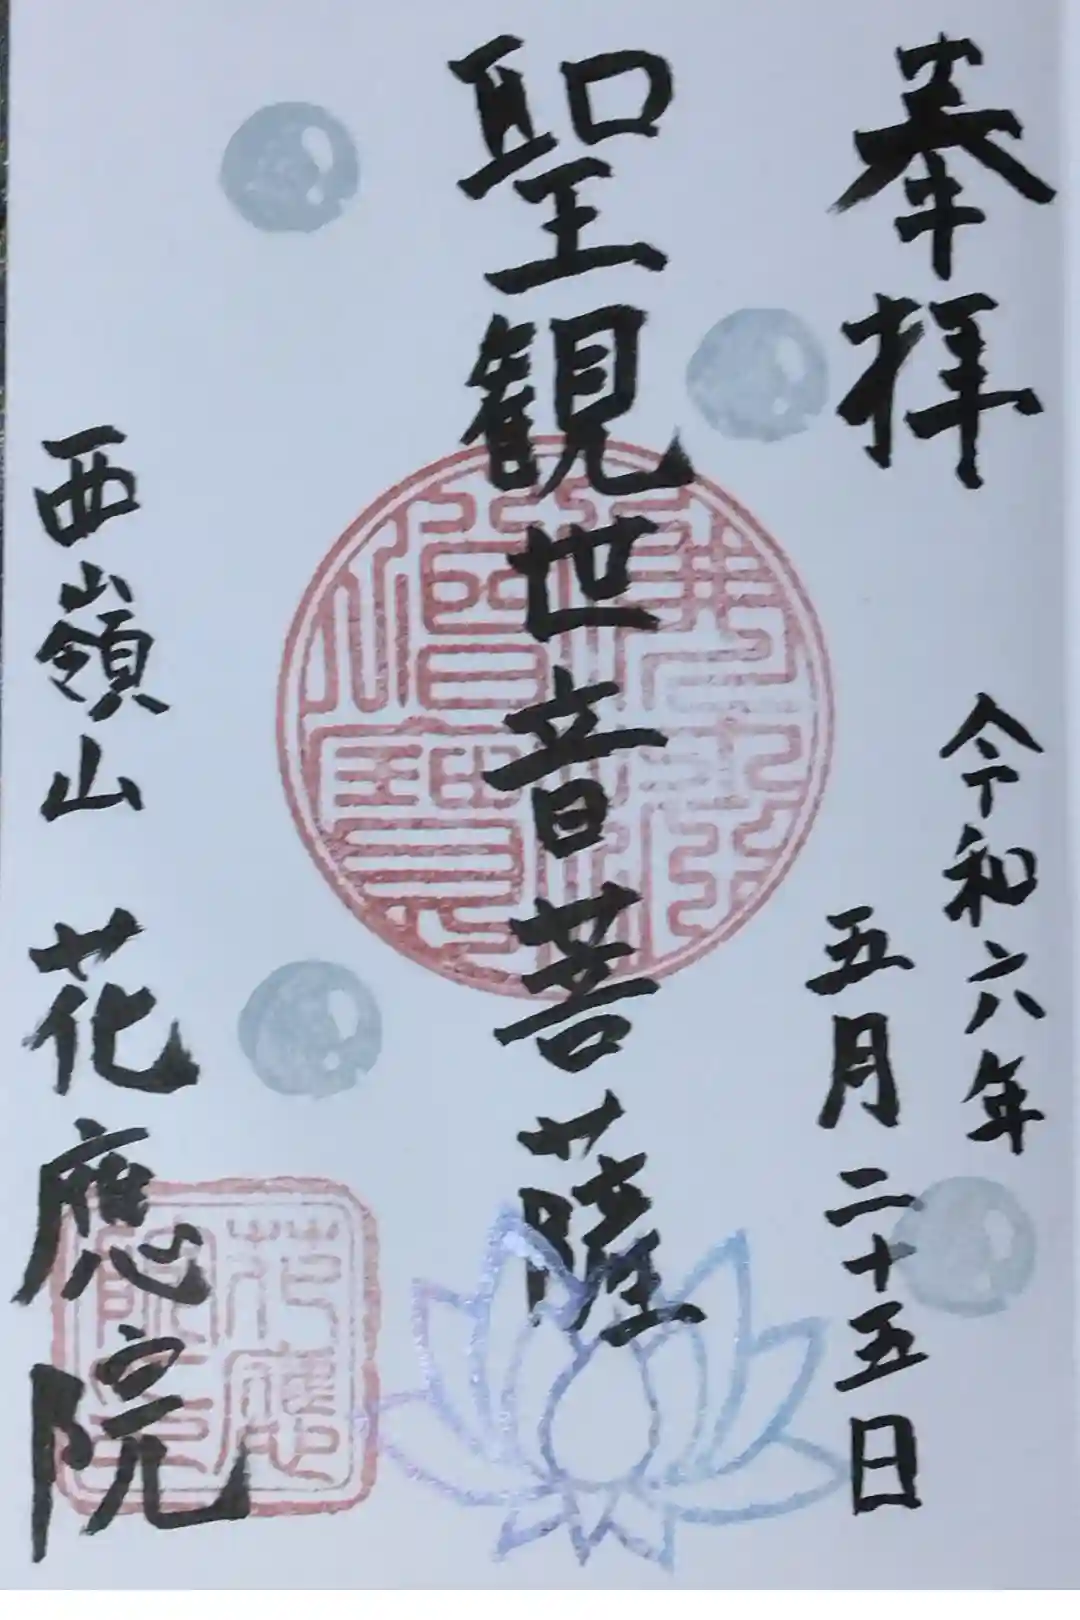 奉拝
令和六年
五月二十五日
聖観世音菩薩
佛法僧寳
西嶺山 花應院
花應院印